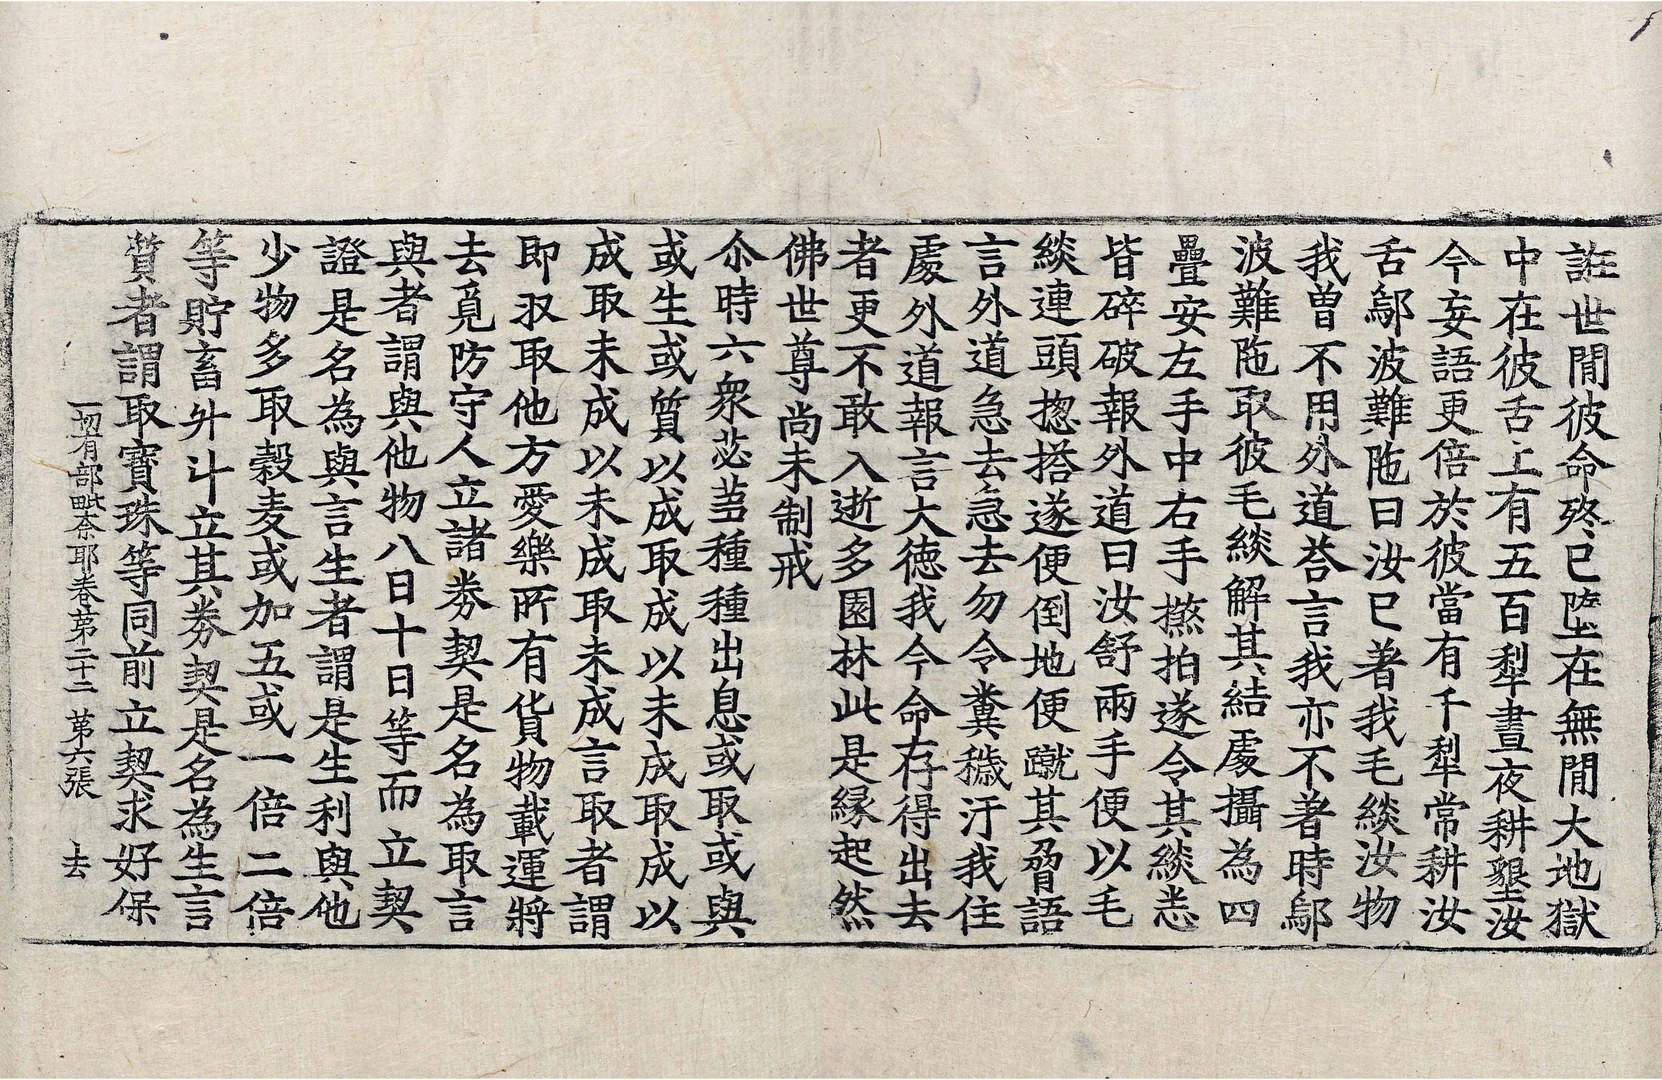 誑世間彼命終已墮在無間大地獄
中在彼舌上有五百犁晝夜耕墾汝
今妄語更倍於彼當有千犁常耕汝
舌鄔波難陁曰汝已著我毛緂汝物
我曾不用外道荅言我亦不著時鄔
波難陁取彼毛緂解其結處攝為四
疊安左手中右手撚拍遂令其緂悉
皆碎破報外道曰汝舒兩手便以毛
緂連頭揔搭遂便倒地便蹴其脅語
言外道急去急去勿令糞穢汙我住
處外道報言大德我今命存得出去
者更不敢入逝多園林此是緣起然
佛世尊尚未制戒
尒時六衆苾蒭種種出息或取或與
或生或質以成取成以未成取成以
成取未成以未成取未成言取者謂
即収取他方愛樂所有貨物載運將
去覓防守人立諸券契是名為取言
與者謂與他物八日十日等而立契
證是名為與言生者謂是生利與他
少物多取穀麦或加五或一倍二倍
等貯畜升斗立其券契是名為生言
質者謂取寶珠等同前立契求好保
一切有部毗奈耶卷第二十二 第六張 去